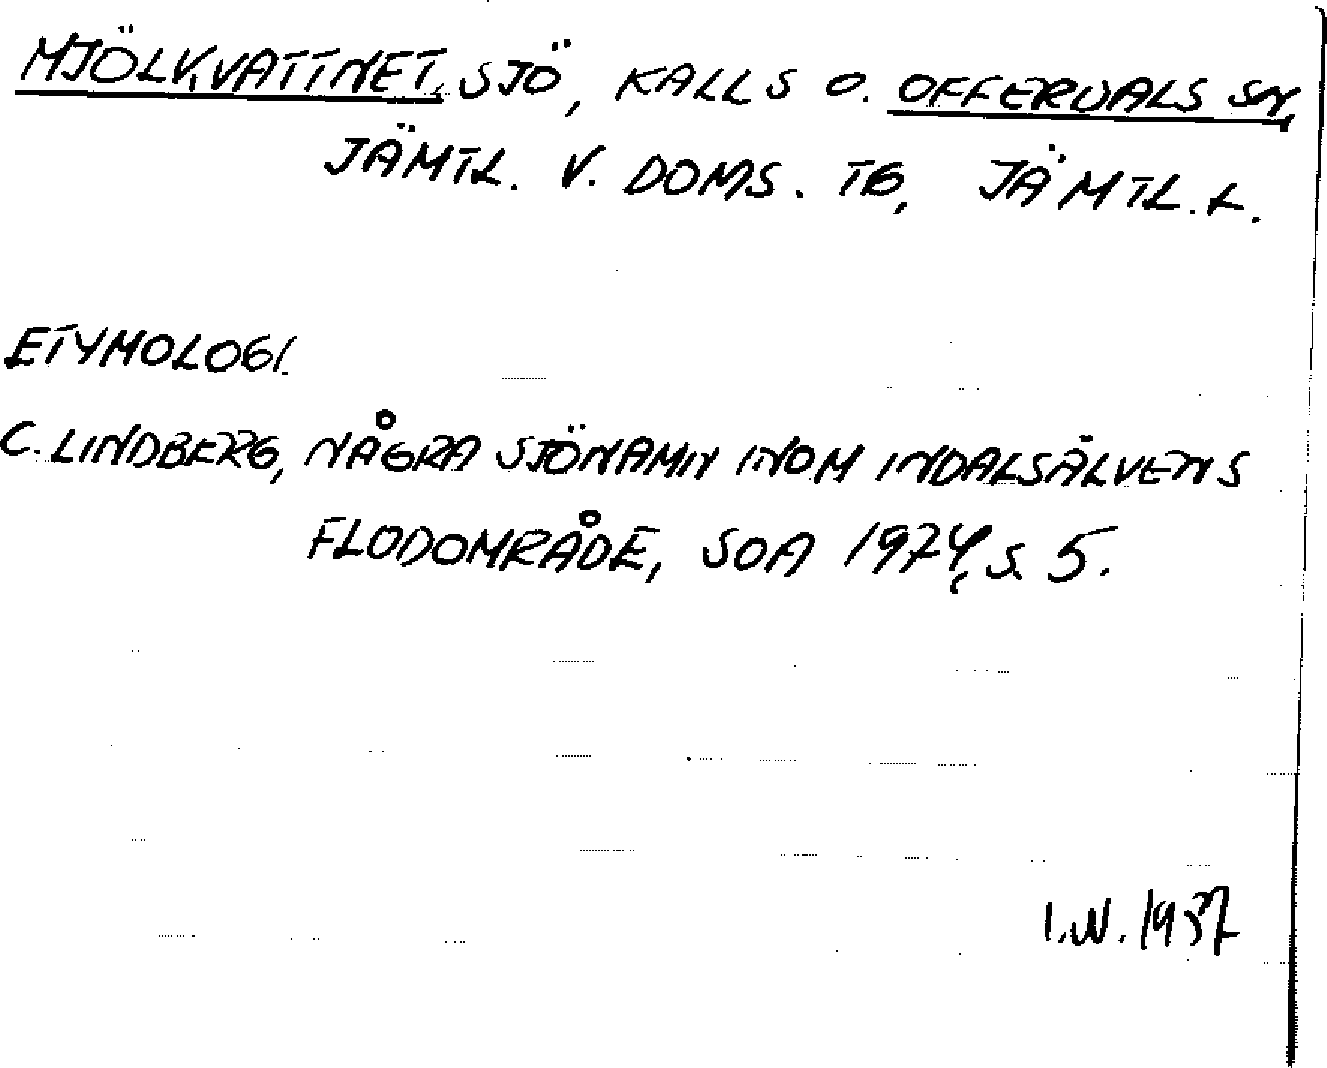 MJÖLKVATTNET, SJÖ, KALLS O. OFFERDALS SN,
JÄMTL. V. DOMS. TG, JÄMTL. L.
ETYMOLOGI.
C. LINDBERG, NÅGRA SJÖNAMN INOM INDALSÄLVENS
FLODOMRÅDE, SOA 1974, S. 5.
I.N. 1987